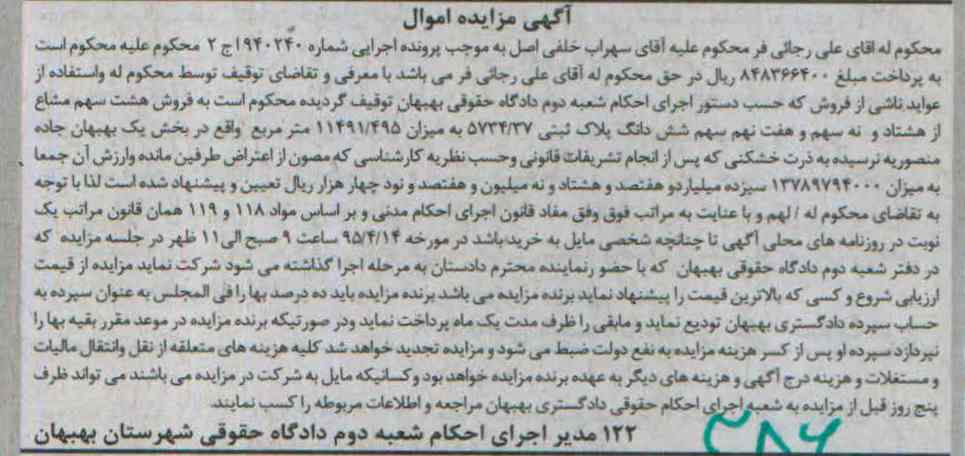 آگهی مزایده اموال
محکوم له اقای علی رجائی فر محکوم علیه آقای سهراب خلفی اصل به موجب پرونده اجرایی شماره ۹۴۰۲۴۰ اج ۲ محکوم علیه محکوم است
به پرداخت مبلغ ۸۴۸۳۶۶۴۰۰ ریال در حق محکوم له آقای علی رجائی فر می باشد با معرفی و تقاضای توقیف توسط محکوم له واستفاده از
عواید ناشی از فروش که حسب دستور اجرای احکام شعبه دوم دادگاه حقوقی بهبهان توقیف گردیده محکوم است به فروش هشت سهم مشاع
از هشتاد و نه سهم و هفت نهم سهم شش دانگ پلاک ثبتی ۵۷۳۴/۳۷ به میزان ۱۱۴۹۱/۴۹۵ متر مربع واقع در بخش یک بهبهان جاده
منصوریه نرسیده به ذرت خشکنی که پس از انجام تشریفات قانونی وحسب نظریه کارشناسی که مصون از اعتراض طرفین مانده وارزش آن جمعا
به میزان ۱۳۷۸۹۷۹۴۰۰۰ سیزده میلیاردو هفتصد و هشتاد و نه میلیون و هفتصد و نود چهار هزار ریال تعیین و پیشنهاد شده است لذا با توجه
به تقاضای محکوم له / لهم و با عنایت به مراتب فوق وفق مفاد قانون اجرای احکام مدنی و بر اساس مواد ۱۱۸ و ۱۱۹ همان قانون مراتب یک
نوبت در روزنامه های محلی آگهی تا چنانچه شخصی مایل به خرید باشد در مورخه ۹۵/۴/۱۴ ساعت ۹ صبح الی ۱۱ ظهر در جلسه مزایده که
در دفتر شعبه دوم دادگاه حقوقی بهبهان که با حضو رنماینده محترم دادستان به مرحله اجرا گذاشته می شود شرکت نماید مزایده از قیمت
ارزیابی شروع و کسی که بالاترین قیمت را پیشنهاد نماید برنده مزایده می باشد برنده مزایده باید ده درصد بها را فی المجلس به عنوان سپرده به
حساب سپرده دادگستری بهبهان تودیع نماید و مابقی را ظرف مدت یک ماه پرداخت نماید ودر صورتیکه برنده مزایده در موعد مقرر بقیه بها را
نپردازد سپرده او پس از کسر هزینه مزایده به نفع دولت ضبط می شود و مزایده تجدید خواهد شد کلیه هزینه های متعلقه از نقل وانتقال مالیات
و مستغلات و هزینه درج آگهی و هزینه های دیگر به عهده برنده مزایده خواهد بود وکسانیکه مایل به شرکت در مزایده می باشند می تواند ظرف
پنج روز قبل از مزایده به شعبه اجرای احکام حقوقی دادگستری بهبهان مراجعه و اطلاعات مربوطه را کسب نمایند.
۱۲۲ مدیر اجرای احکام شعبه دوم دادگاه حقوقی شهرستان بهبهان